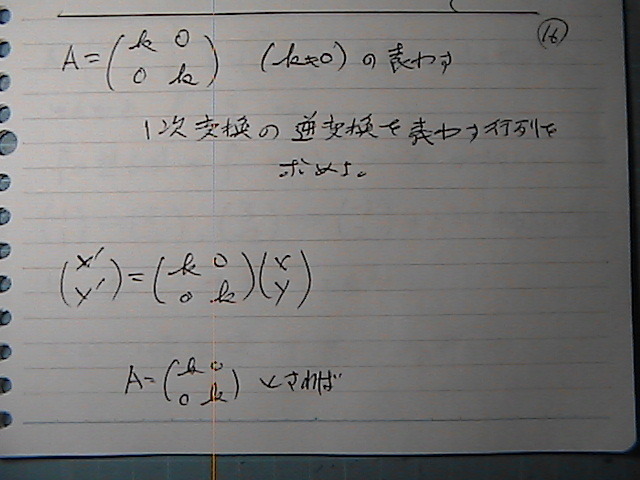 (16)
A = ( k 0 / 0 k ) (k≠0) の表わす
1次変換の逆変換を表わす行列を
求めよ。
( x' / y' ) = ( k 0 / 0 k ) ( x / y )
A = ( k 0 / 0 k ) とされば